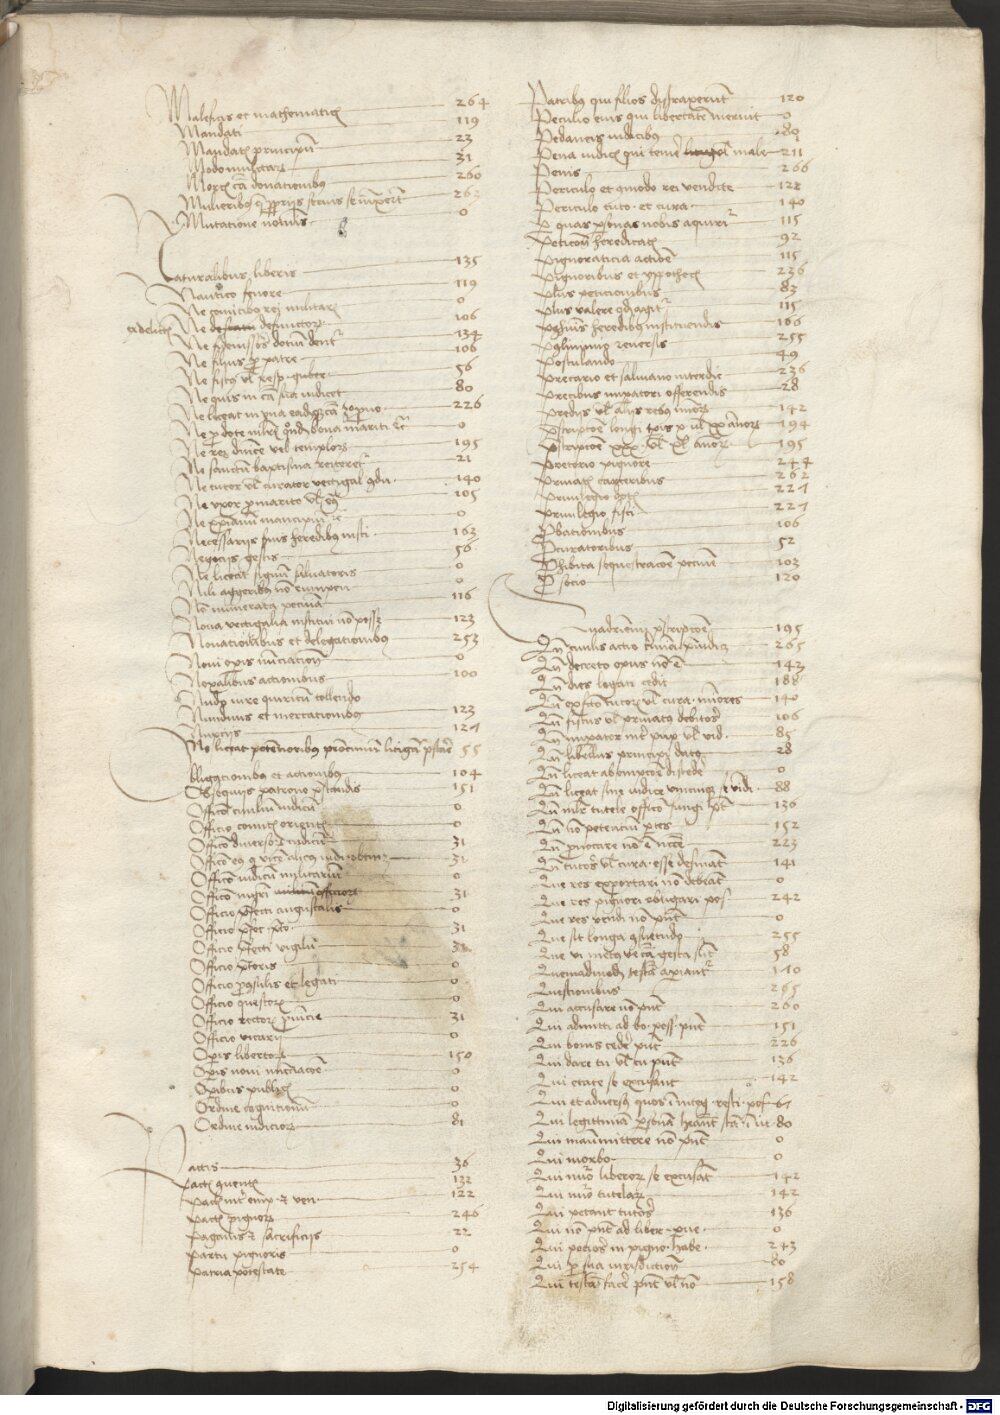 Maleficis et mathematicis 264
Mandati 119
Mandatis principum 23
Modo mulctarum 31
Mortis causa donationibus 260
Mulieribus que propriis servis se iunxerunt 262
Mutatione nominis 0
Naturalibus liberis 135
Nautico fenore 119
Ne comitibus rei militaris 0
ex delictis Ne defunctorum 106
Ne fideiussores dotium dentur 134
Ne filius pro patre 106
Ne fiscus vel resp. 56
Ne quis in causa sua iudicet 80
Ne liceat in una eademque causa 226
Ne pro dote mulieri bona mariti 0
Ne rei divine vel templorum 195
Ne sanctum baptisma reiteretur 21
Ne tutor vel curator vectigal 140
Ne uxor pro marito vel 105
Ne christianum mancipium 0
Necessariis servis heredibus insti. 163
Negociis gestis 56
Ne liceat signum salvatoris 0
Nili aggeribus non rumpen. 0
Non numerata pecunia 116
Nova vectigalia institui non posse
Novationibus et delegationibus 123
Novi operis nunciationem 253
Noxalibus actionibus 0
Nudo iure quiritum tollendo 100
Nundinis et mercationibus
Nuptiis 123
Ne liceat potentioribus patrocinium litigantibus prestare 55
Obligationibus et actionibus 104
Obsequiis patrono prestandis 151
Officio civilium iudicum 0
Officio comitis orientis 0
Officio diversorum iudicum 31
Officio eius qui vicem alicuius iudi. obtinet 31
Officio iudicum militarium 0
Officio magistri officiorum 31
Officio prefecti augustalis 0
Officio prefec. preto. 31
Officio prefecti vigilum
Officio pretoris 0
Officio proconsulis et legati 0
Officio questoris 0
Officio rectoris provincie 31
Officio vicarii 0
Operis libertorum 150
Operis novi nunciatione 0
Operibus publicis 0
Ordine cognitionum 0
Ordine iudiciorum 81
Pactis 36
Pactis conventis 132
Pactis inter emp. et ven. 122
Pactis pignorum 246
Paganis et sacrificiis 22
Partu pignoris 0
Patria potestate 254
Patribus qui filios distraxerunt 120
Peculio eius qui libertatem meruit 0
Pedaneis iudicibus 80
Pena iudicis qui temere male 211
Penis 266
Periculo et commodo rei vendite 122
Periculo tuto. et cura. 140
Per quas personas nobis aquiritur 115
Peticione hereditatis 92
Pigneraticia actione 115
Pignoribus et yppothecis 236
Plus peticionibus 83
Plus valere quod agitur 115
Posthumis heredibus instituendis 166
Postliminio reversis 255
Postulando 49
Precario et salviano interdic. 236
Precibus imperatori offerendis 28
Prediis vel aliis rebus minorum 142
Prescriptione longi temporis x vel xx annorum 194
Prescriptione xxx vel xl annorum 195
Pretorio pignore 244
Privatis carceribus 262
Privilegio dotis 227
Privilegio fisci 227
Probationibus 106
Procuratoribus 52
Prohibita sequestracione pecunie 103
Pro socio 120
Quadriennii prescriptione 195
Quando civilis actio criminali preiudicet 265
Quando decreto opus non est 142
Quando dies legati cedit 188
Quando ex facto tutoris vel cura. minores 140
Quando fiscus vel privatus debitoris 106
Quando imperator inter pup. vel vid. 85
Quando libellus principi datus 28
Quando liceat ab emptione discedere 0
Quando liceat sine iudice unicuique se vindi. 88
Quando mulier tutele officio fungi potest 136
Quando non petentium partes 152
Quando provocare non est necesse 223
Quando tutores vel cura. esse desinant 141
Que res exportari non debeant 0
Que res pignori obligari pos. 242
Que res vendi non possunt 0
Que sit longa consuetudo 255
Que vi metusve causa gesta sunt 58
Quemadmodum testamenta aperiantur 170
Questionibus 265
Qui accusare non possunt 260
Qui admitti ad bo. poss. possunt 151
Qui bonis cedere possunt 226
Qui dare tu. vel cu. possunt 136
Qui etate se excusant 142
Qui et adversus quos in integ. resti. pos. 67
Qui legittimam personam habeant standi in iu. 80
Qui manumittere non possunt 0
Qui morbo 0
Qui numero liberorum se excusant 142
Qui numero tutelarum 142
Qui petant tutores 136
Qui non possunt ad liber. pve. 0
Qui potiores in pigno. habe. 243
Qui pro sua iurisdictione 80
Qui testamenta facere possunt vel non 158
Digitalisierung gefördert durch die Deutsche Forschungsgemeinschaft - DFG